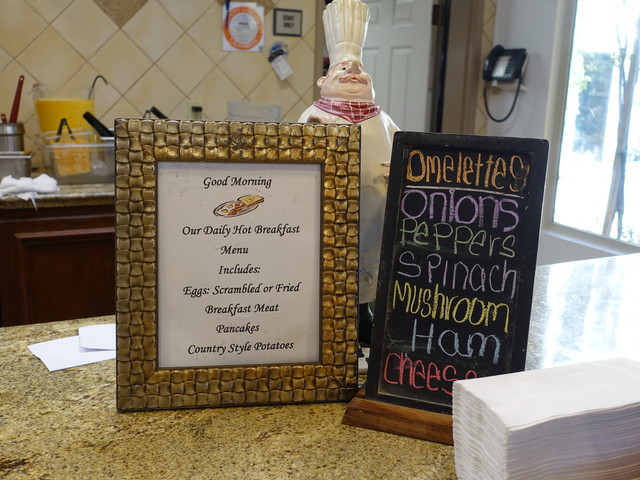 Good Morning
Our Daily Hot Breakfast
Menu
Includes:
Eggs: Scrambled or Fried
Breakfast Meat
Pancakes
Country Style Potatoes
Omelettes
Onions
Peppers
Spinach
Mushroom
Ham
Cheese